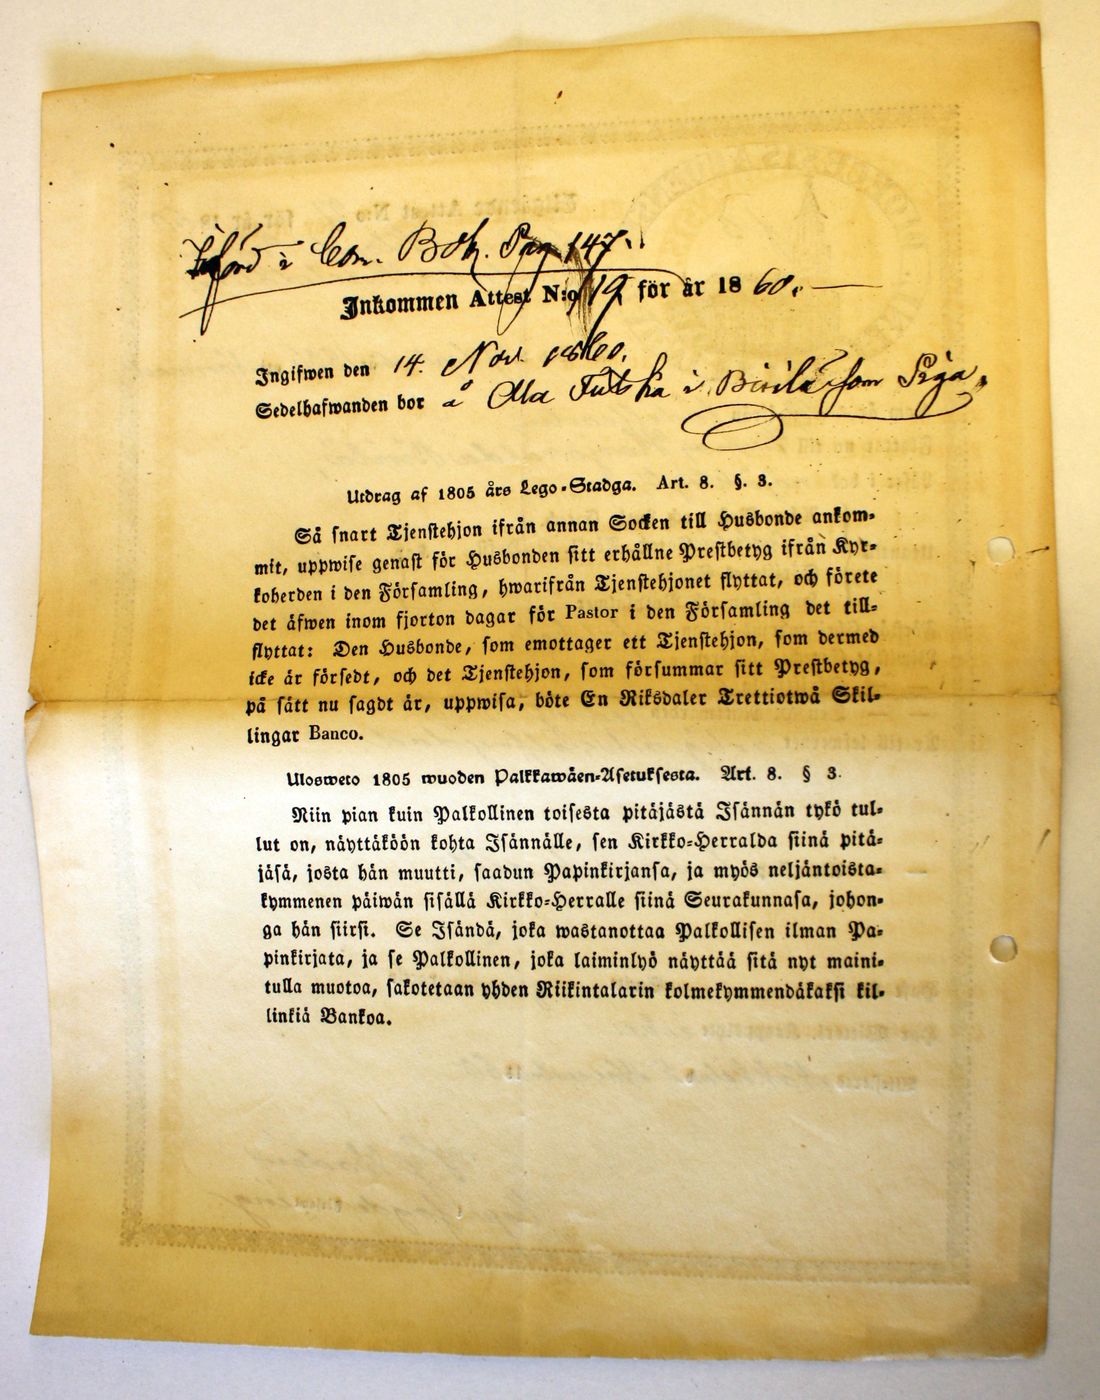 Införd i Com. Bok. Pag 147.
Inkommen Attest N:o 19 för år 1860.
Ingifwen den 14. Nov. 1860.
Sedelhafwanden bor å Ala i som Piga.
Utdrag af 1805 års Lego-Stadga. Art. 8. §. 3.
Så snart Tjenstehjon ifrån annan Socken till Husbonde ankom-
mit, uppwise genast för Husbonden sitt erhållne Prestbetyg ifrån Kyr-
koherden i den Församling, hwarifrån Tjenstehjonet flyttat, och förete
det äfwen inom fjorton dagar för Pastor i den Församling det till-
flyttat: Den Husbonde, som emottager ett Tjenstehjon, som dermed
icke är försedt, och det Tjenstehjon, som försummar sitt Prestbetyg,
på sätt nu sagdt är, uppwisa, böte En Riksdaler Trettiotwå Skil-
lingar Banco.
Ulosweto 1805 wuoden Palkkawäen-Asetuksesta. Art. 8. § 3.
Niin pian kuin Palkollinen toisesta pitäjästä Isännän tykö tul-
lut on, näyttäköön kohta Isännälle, sen Kirkko-Herralda siinä pitä-
jäsä, josta hän muutti, saadun Papinkirjansa, ja myös neljäntoista-
kymmenen päiwän sisällä Kirkko-Herralle siinä Seurakunnasa, johon-
ga hän siirsi. Se Isändä, joka wastanottaa Palkollisen ilman Pa-
pinkirjata, ja se Palkollinen, joka laiminlyö näyttää sitä nyt maini-
tulla muotoa, sakotetaan yhden Riikintalarin kolmekymmendäkaksi kil-
linkiä Bankoa.